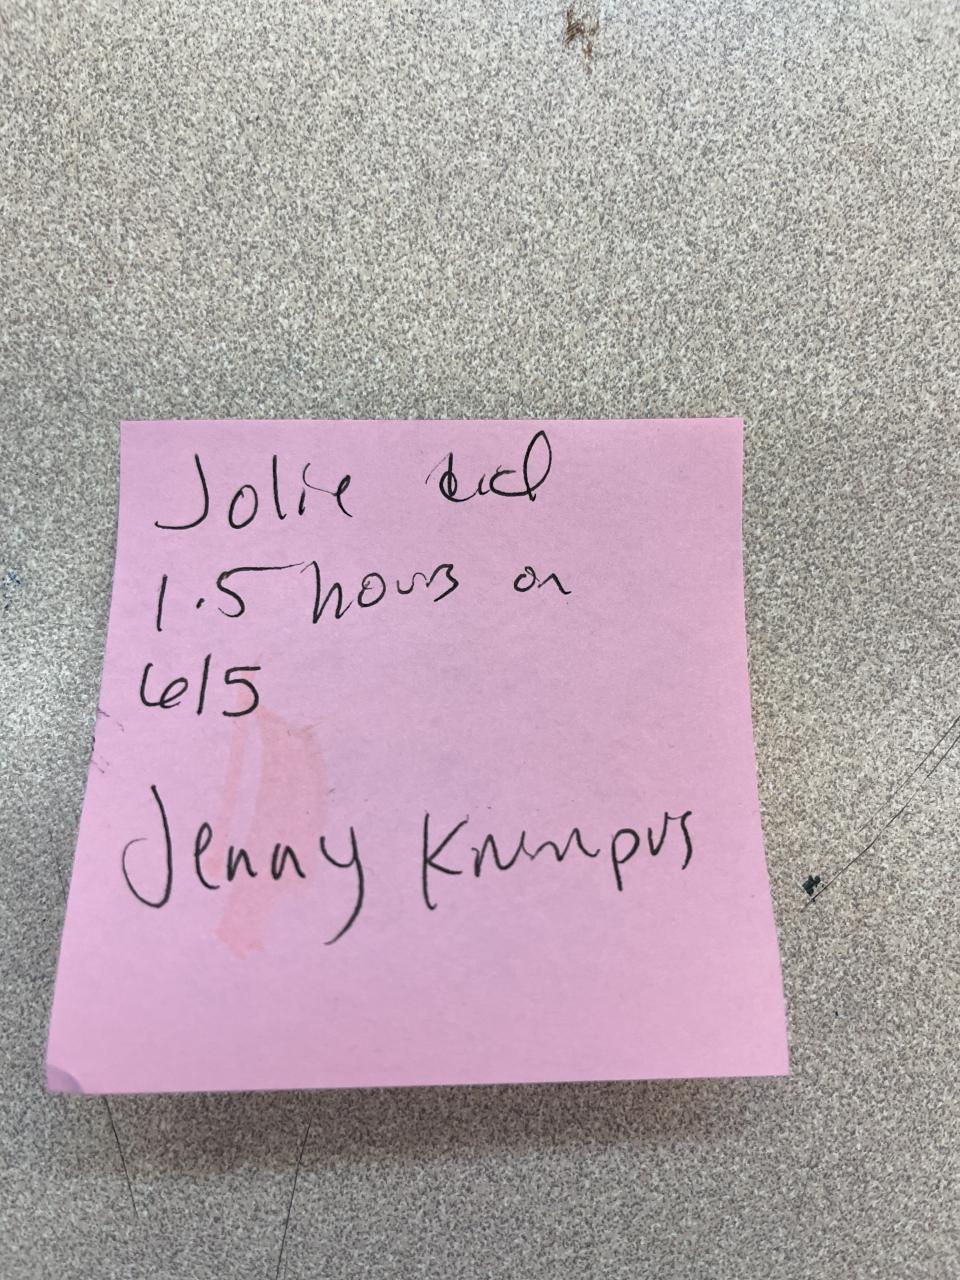 Jolie did
1.5 hours on
6/5
Jenny Krumpus